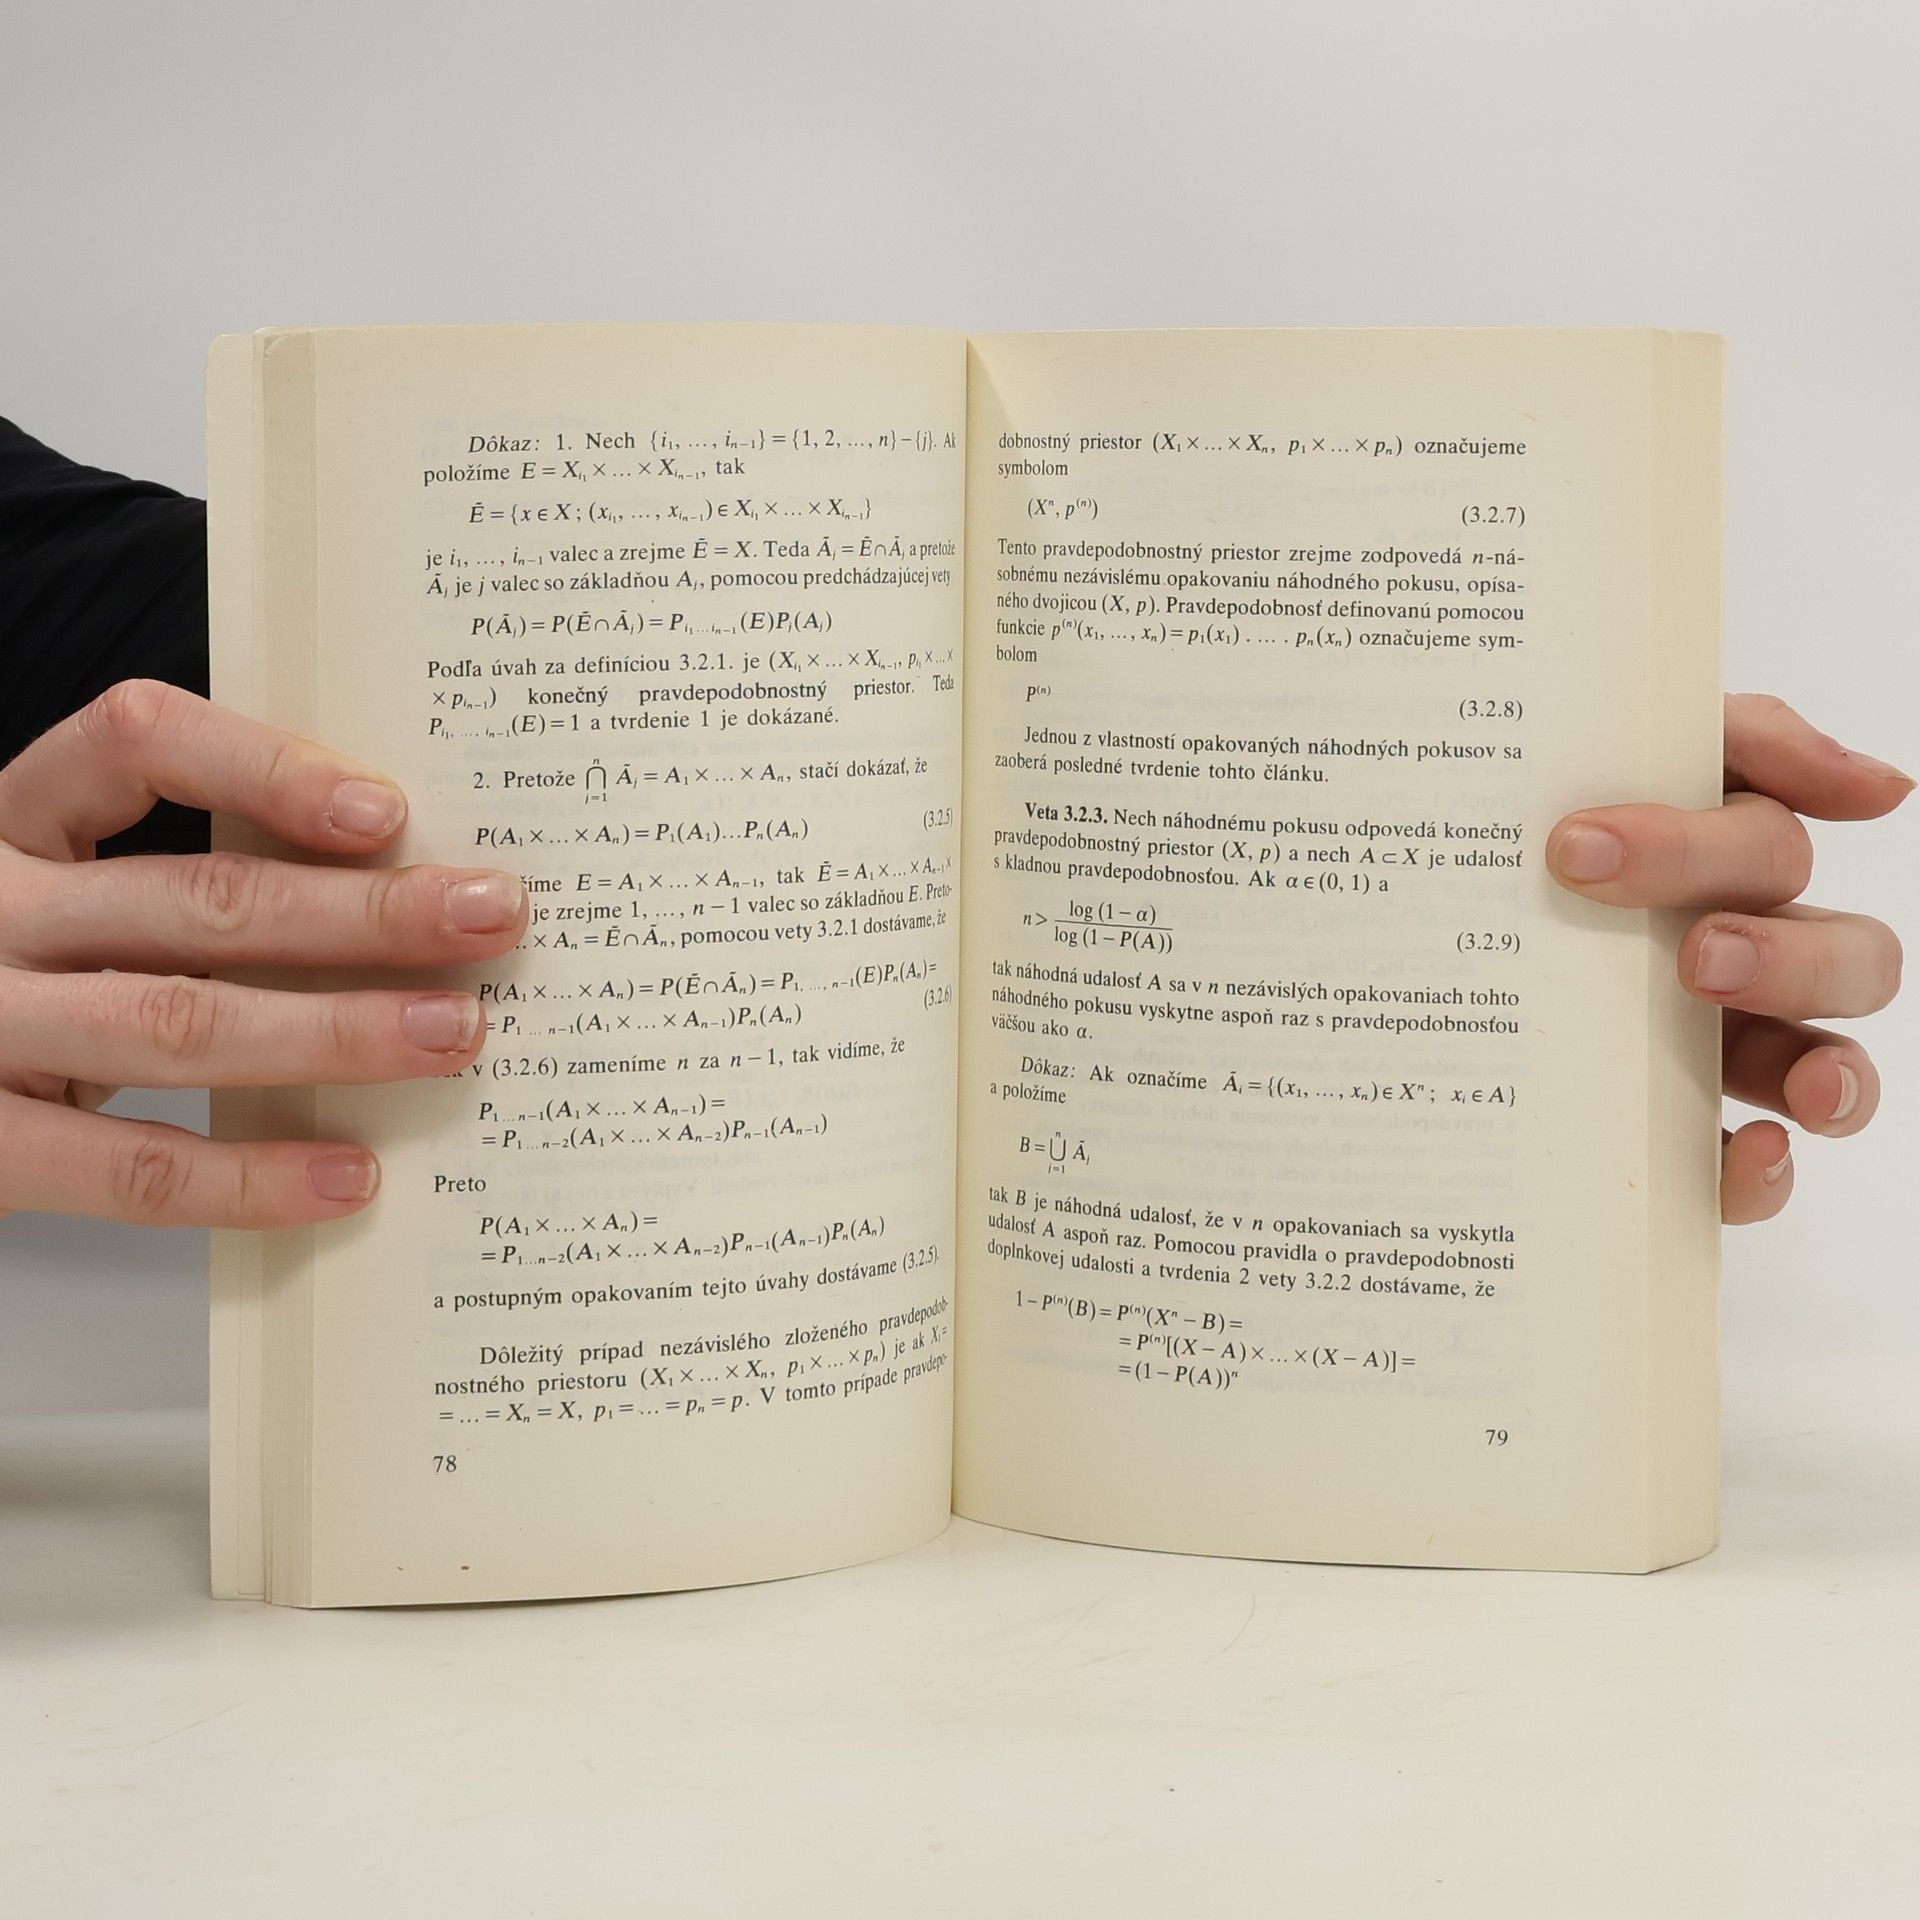 Dôkaz: 1. Nech {i₁, …, iₙ₋₁} = {1, 2, …, n} – {j}. Ak
položíme E = Xᵢ₁ × … × Xᵢₙ₋₁, tak
Ẽ = {x ∈ X; (xᵢ₁, …, xᵢₙ₋₁) ∈ Xᵢ₁ × … × Xᵢₙ₋₁}
je i₁, …, iₙ₋₁ valec a zrejme Ẽ = X. Teda Ãⱼ = Ẽ ∩ Ãⱼ a pretože
Ãⱼ je j valec so základňou Aⱼ, pomocou predchádzajúcej vety
P(Ãⱼ) = P(Ẽ ∩ Ãⱼ) = Pᵢ₁…ᵢₙ₋₁(E)Pⱼ(Aⱼ)
Podľa úvah za definíciou 3.2.1. je (Xᵢ₁ × … × Xᵢₙ₋₁, pᵢ₁ × … ×
× pᵢₙ₋₁) konečný pravdepodobnostný priestor. Teda
Pᵢ₁, …, ᵢₙ₋₁(E) = 1 a tvrdenie 1 je dokázané.
2. Pretože ⋂ⱼ₌₁ⁿ Ãⱼ = A₁ × … × Aₙ, stačí dokázať, že
P(A₁ × … × Aₙ) = P₁(A₁)…Pₙ(Aₙ) (3.2.5)
íme E = A₁ × … × Aₙ₋₁, tak Ẽ = A₁ × … × Aₙ₋₁ ×
je zrejme 1, …, n – 1 valec so základňou E. Preto-
× Aₙ = Ẽ ∩ Ãₙ, pomocou vety 3.2.1 dostávame, že
P(A₁ × … × Aₙ) = P(Ẽ ∩ Ãₙ) = P₁, …, ₙ₋₁(E)Pₙ(Aₙ) =
= P₁ … ₙ₋₁(A₁ × … × Aₙ₋₁)Pₙ(Aₙ) (3.2.6)
v (3.2.6) zameníme n za n – 1, tak vidíme, že
P₁…ₙ₋₁(A₁ × … × Aₙ₋₁) =
= P₁…ₙ₋₂(A₁ × … × Aₙ₋₂)Pₙ₋₁(Aₙ₋₁)
Preto
P(A₁ × … × Aₙ) =
= P₁…ₙ₋₂(A₁ × … × Aₙ₋₂)Pₙ₋₁(Aₙ₋₁)Pₙ(Aₙ)
a postupným opakovaním tejto úvahy dostávame (3.2.5).
Dôležitý prípad nezávislého zloženého pravdepodob-
nostného priestoru (X₁ × … × Xₙ, p₁ × … × pₙ) je ak X₁ =
= … = Xₙ = X, p₁ = … = pₙ = p. V tomto prípade pravdepo-
78
dobnostný priestor (X₁ × … × Xₙ, p₁ × … × pₙ) označujeme
symbolom
(Xⁿ, p⁽ⁿ⁾) (3.2.7)
Tento pravdepodobnostný priestor zrejme zodpovedá n-ná-
sobnému nezávislému opakovaniu náhodného pokusu, opísa-
ného dvojicou (X, p). Pravdepodobnosť definovanú pomocou
funkcie p⁽ⁿ⁾(x₁, …, xₙ) = p₁(x₁) . … . pₙ(xₙ) označujeme sym-
bolom
P⁽ⁿ⁾ (3.2.8)
Jednou z vlastností opakovaných náhodných pokusov sa
zaoberá posledné tvrdenie tohto článku.
Veta 3.2.3. Nech náhodnému pokusu odpovedá konečný
pravdepodobnostný priestor (X, p) a nech A ⊂ X je udalosť
s kladnou pravdepodobnosťou. Ak α ∈ (0, 1) a
n > log (1 – α) / log (1 – P(A)) (3.2.9)
tak náhodná udalosť A sa v n nezávislých opakovaniach tohto
náhodného pokusu vyskytne aspoň raz s pravdepodobnosťou
väčšou ako α.
Dôkaz: Ak označíme Ãᵢ = {(x₁, …, xₙ) ∈ Xⁿ; xᵢ ∈ A}
a položíme
B = ⋃ⱼ₌₁ⁿ Ãⱼ
tak B je náhodná udalosť, že v n opakovaniach sa vyskytla
udalosť A aspoň raz. Pomocou pravidla o pravdepodobnosti
doplnkovej udalosti a tvrdenia 2 vety 3.2.2 dostávame, že
1 – P⁽ⁿ⁾(B) = P⁽ⁿ⁾(Xⁿ – B) =
= P⁽ⁿ⁾[(X – A) × … × (X – A)] =
= (1 – P(A))ⁿ
79